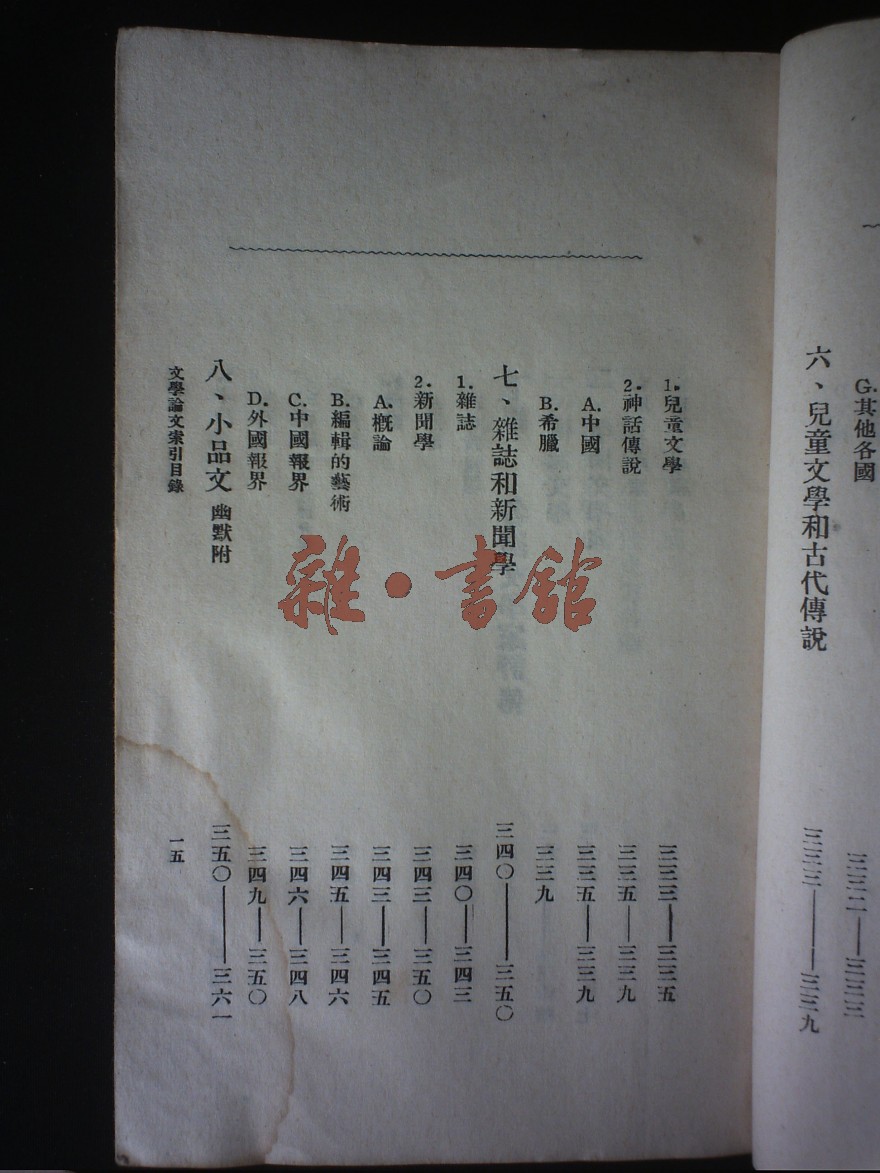 G.其他各國 三三二——三三三
六、兒童文學和古代傳說 三三三——三三九
1.兒童文學 三三三——三三五
2.神話傳說 三三五——三三九
A.中國 三三五——三三九
B.希臘 三三九
七、雜誌和新聞學 三四〇——三五〇
1.雜誌 三四〇——三四三
2.新聞學 三四三——三五〇
A.概論 三四三——三四五
B.編輯的藝術 三四五——三四六
C.中國報界 三四六——三四八
D.外國報界 三四九——三五〇
八、小品文 幽默附 三五〇——三六一
文學論文索引目錄 一五
雜·書館